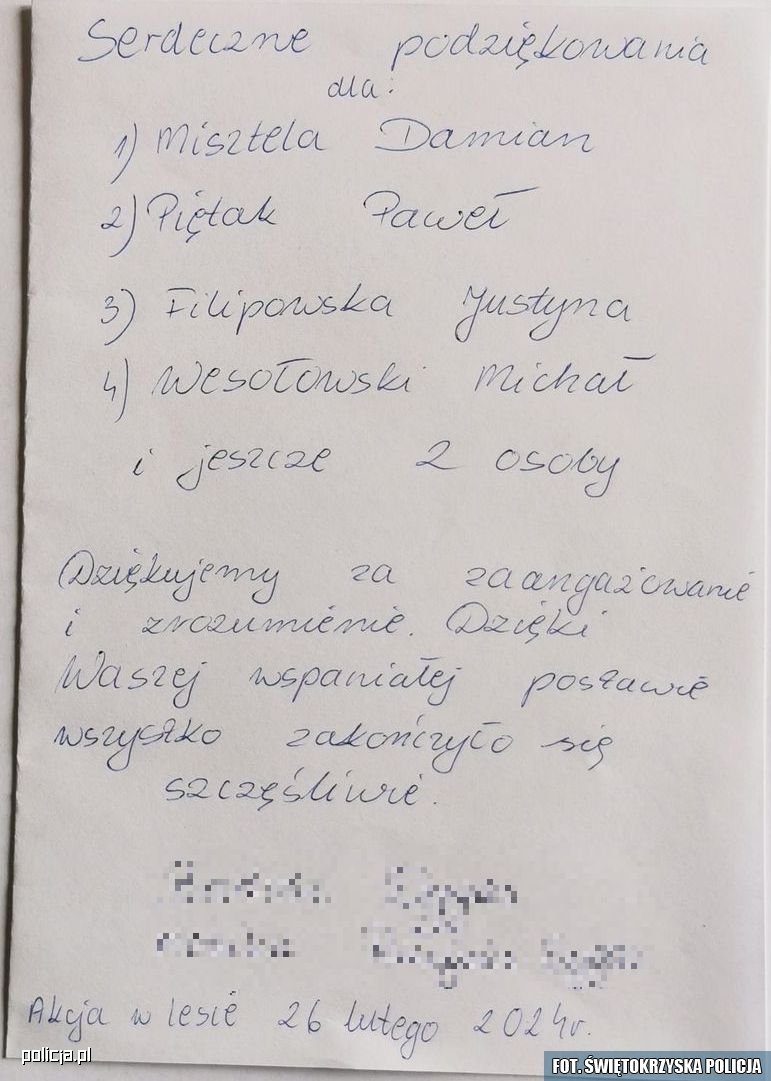 Serdeczne podziękowania
dla:
1) Misztela Damian
2) Piętak Paweł
3) Filipowska Justyna
4) Wesołowski Michał
i jeszcze 2 osoby
Dziękujemy za zaangażowanie
i zrozumienie. Dzięki
Waszej wspaniałej postawie
wszystko zakończyło się
szczęśliwie.
Akcja w lesie 26 lutego 2024r.
policja.pl
FOT. ŚWIĘTOKRZYSKA POLICJA